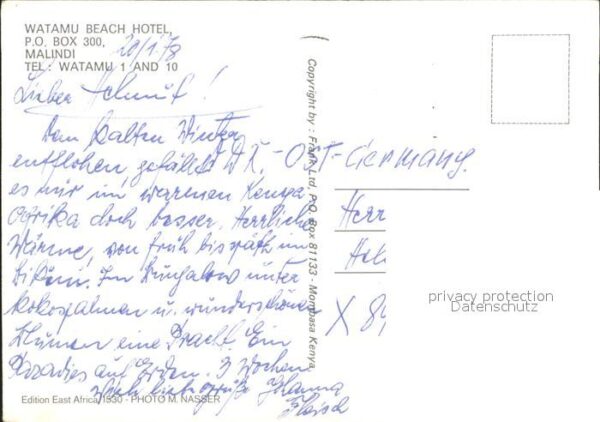 WATAMU BEACH HOTEL
P.O. BOX 300,
MALINDI
TEL: WATAMU 1 AND 10
20/1.78
Lieber Helmut!
Dem kalten Winter
entflohen gefällt
es mir im warmen Kenya
Afrika doch besser. Herrliche
Wärme, von früh bis spät im
Bikini. Im Bungalow unter
Kokospalmen u. wunderschöne
Blumen eine Pracht. Ein
Paradies auf Erden. 3 Wochen
liebe Grüße Johanna
Edition East Africa 1530 - PHOTO M. NASSER
Copyright by: Frank Ltd. P.O. Box 81133 - Mombasa Kenya.
OST-Germany.
Herr
Hel
X 89
privacy protection
Datenschutz